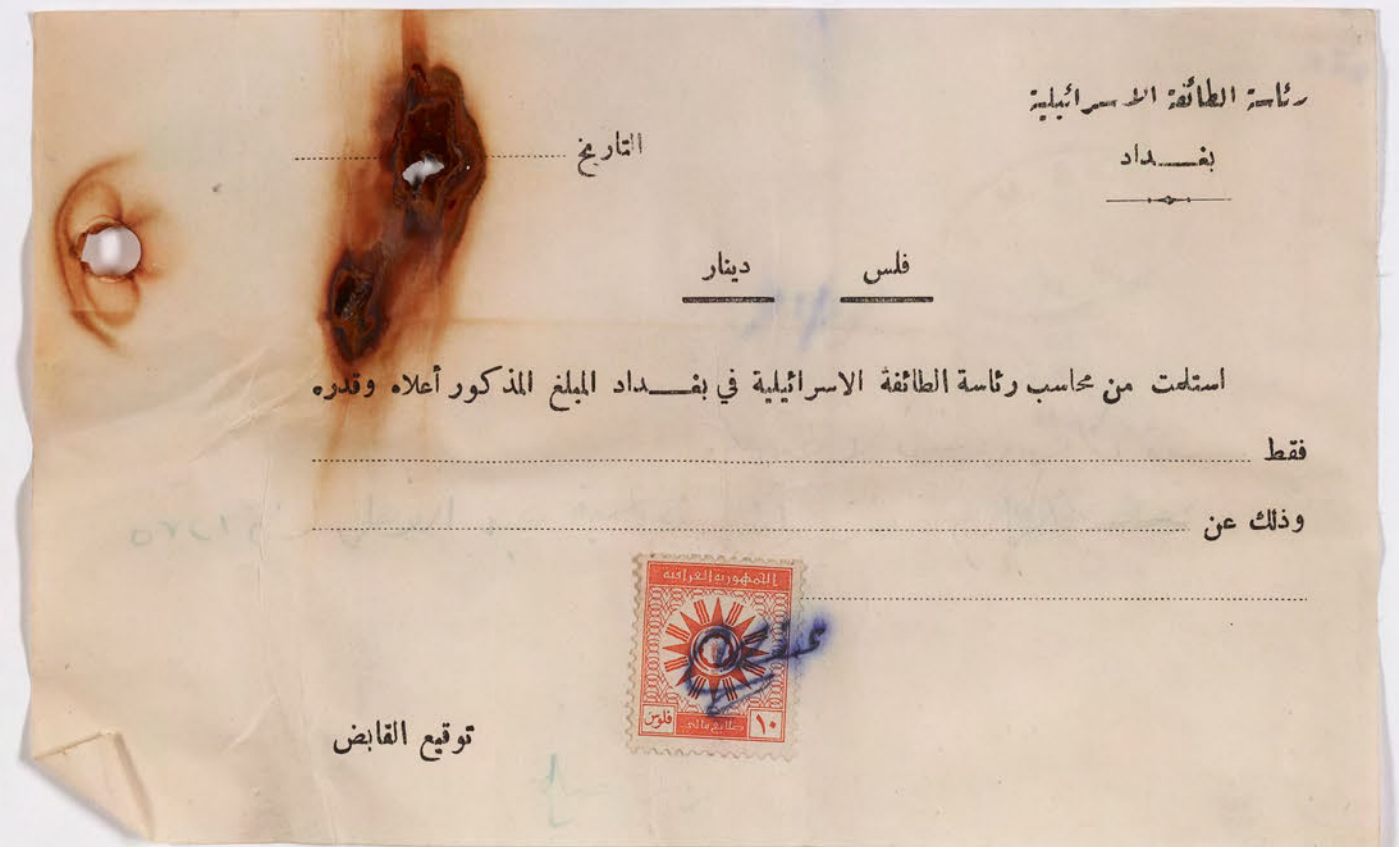 رئاسة الطائفة الاسرائيلية
بغـــداد
التاريخ
فلس دينار
استلمت من محاسب رئاسة الطائفة الاسرائيلية في بغـــداد المبلغ المذكور أعلاه وقدره
فقط
وذلك عن
الجمهورية العراقية
طابع مالي
١٠ فلوس
توقيع القابض